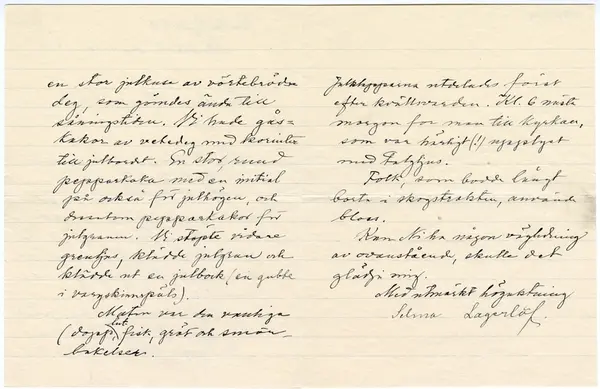 en stor julkuse av vörtebröds-
deg, som gömdes ända till
såningstiden. Vi hade gås-
kakor av vetedeg med korinter
till julbordet. En stor, rund
pepparkaka med en initial
på också för julhögen, och
dessutom pepparkakor för
julgranen. Vi stöpte
grenljus, klädde julgran och
klädde ut en julbock (en gubbe
i vargskinnspäls).
Maten var den vanliga
(dopp, lutfisk, gröt och smör-
bakelser.
Julklapparna utdelades först
efter kvällsvarden. Kl. 6 nästa
morgon for man till kyrkan,
som var härligt (!) upplyst
med talgljus.
Folk, som bodde långt
borta i skogstrakten, använde
bloss.
Kan Ni ha någon vägledning
av ovanstående, skulle det
glädja mig.
Med utmärkt högaktning
Selma Lagerlöf